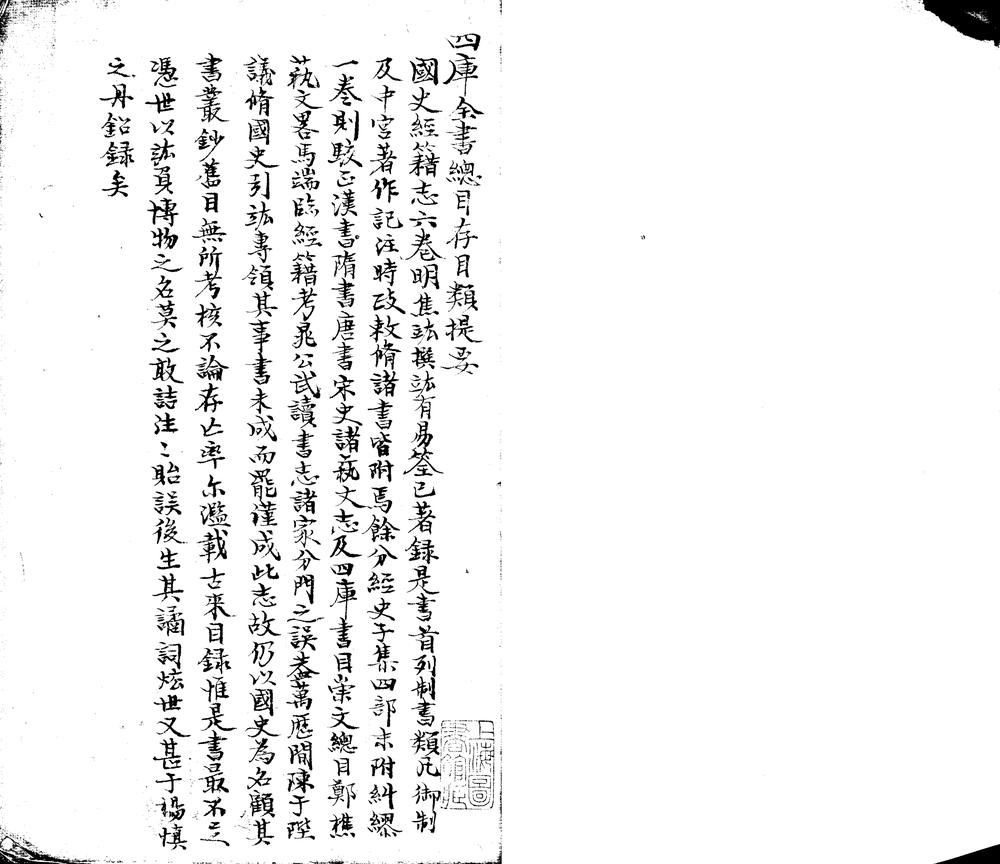 四庫全書總目存目類提要
國史經籍志六卷明焦竑撰竑有易筌已著録是書首列制書類凡御制
及中宮著作記注時政敕脩諸書皆附焉餘分經史子集四部末附糾繆
一卷則駮正漢書隋書唐書宋史諸蓺文志及四庫書目崇文總目鄭樵
蓺文畧馬端臨經籍考晁公武讀書志諸家分門之誤盖萬厯間陳于陛
議脩國史引竑專領其事書未成而罷僅成此志故仍以國史為名顧其
書叢鈔舊目無所考核不論存亡率尔濫載古來目録惟是書最不足
憑世以竑負博物之名莫之敢詰注〻貽誤後生其譎詞炫世又甚于楊慎
之丹鉛録矣
上海圖
書館藏